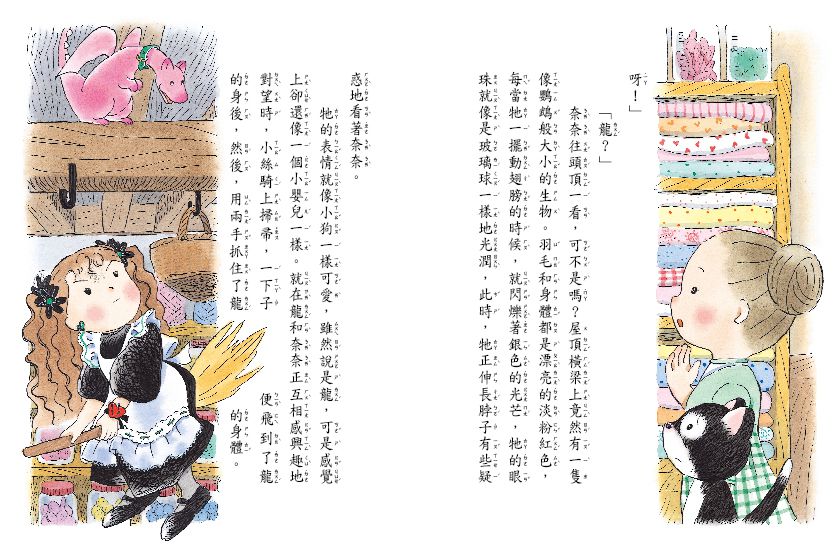 呀！」
「龍？」
奈奈往頭頂一看，可不是嗎？屋頂橫梁上竟然有一隻
像鸚鵡般大小的生物。羽毛和身體都是漂亮的淡粉紅色，
每當牠一擺動翅膀的時候，就閃爍著銀色的光芒，牠的眼
珠就像是玻璃球一樣地光潤，此時，牠正伸長脖子有些疑
惑地看著奈奈。
牠的表情就像小狗一樣可愛，雖然說是龍，可是感覺
上卻還像一個小嬰兒一樣。就在龍和奈奈正互相感興趣地
對望時，小絲騎上掃帚，一下子便飛到了龍
的身後，然後，用兩手抓住了龍的身體。